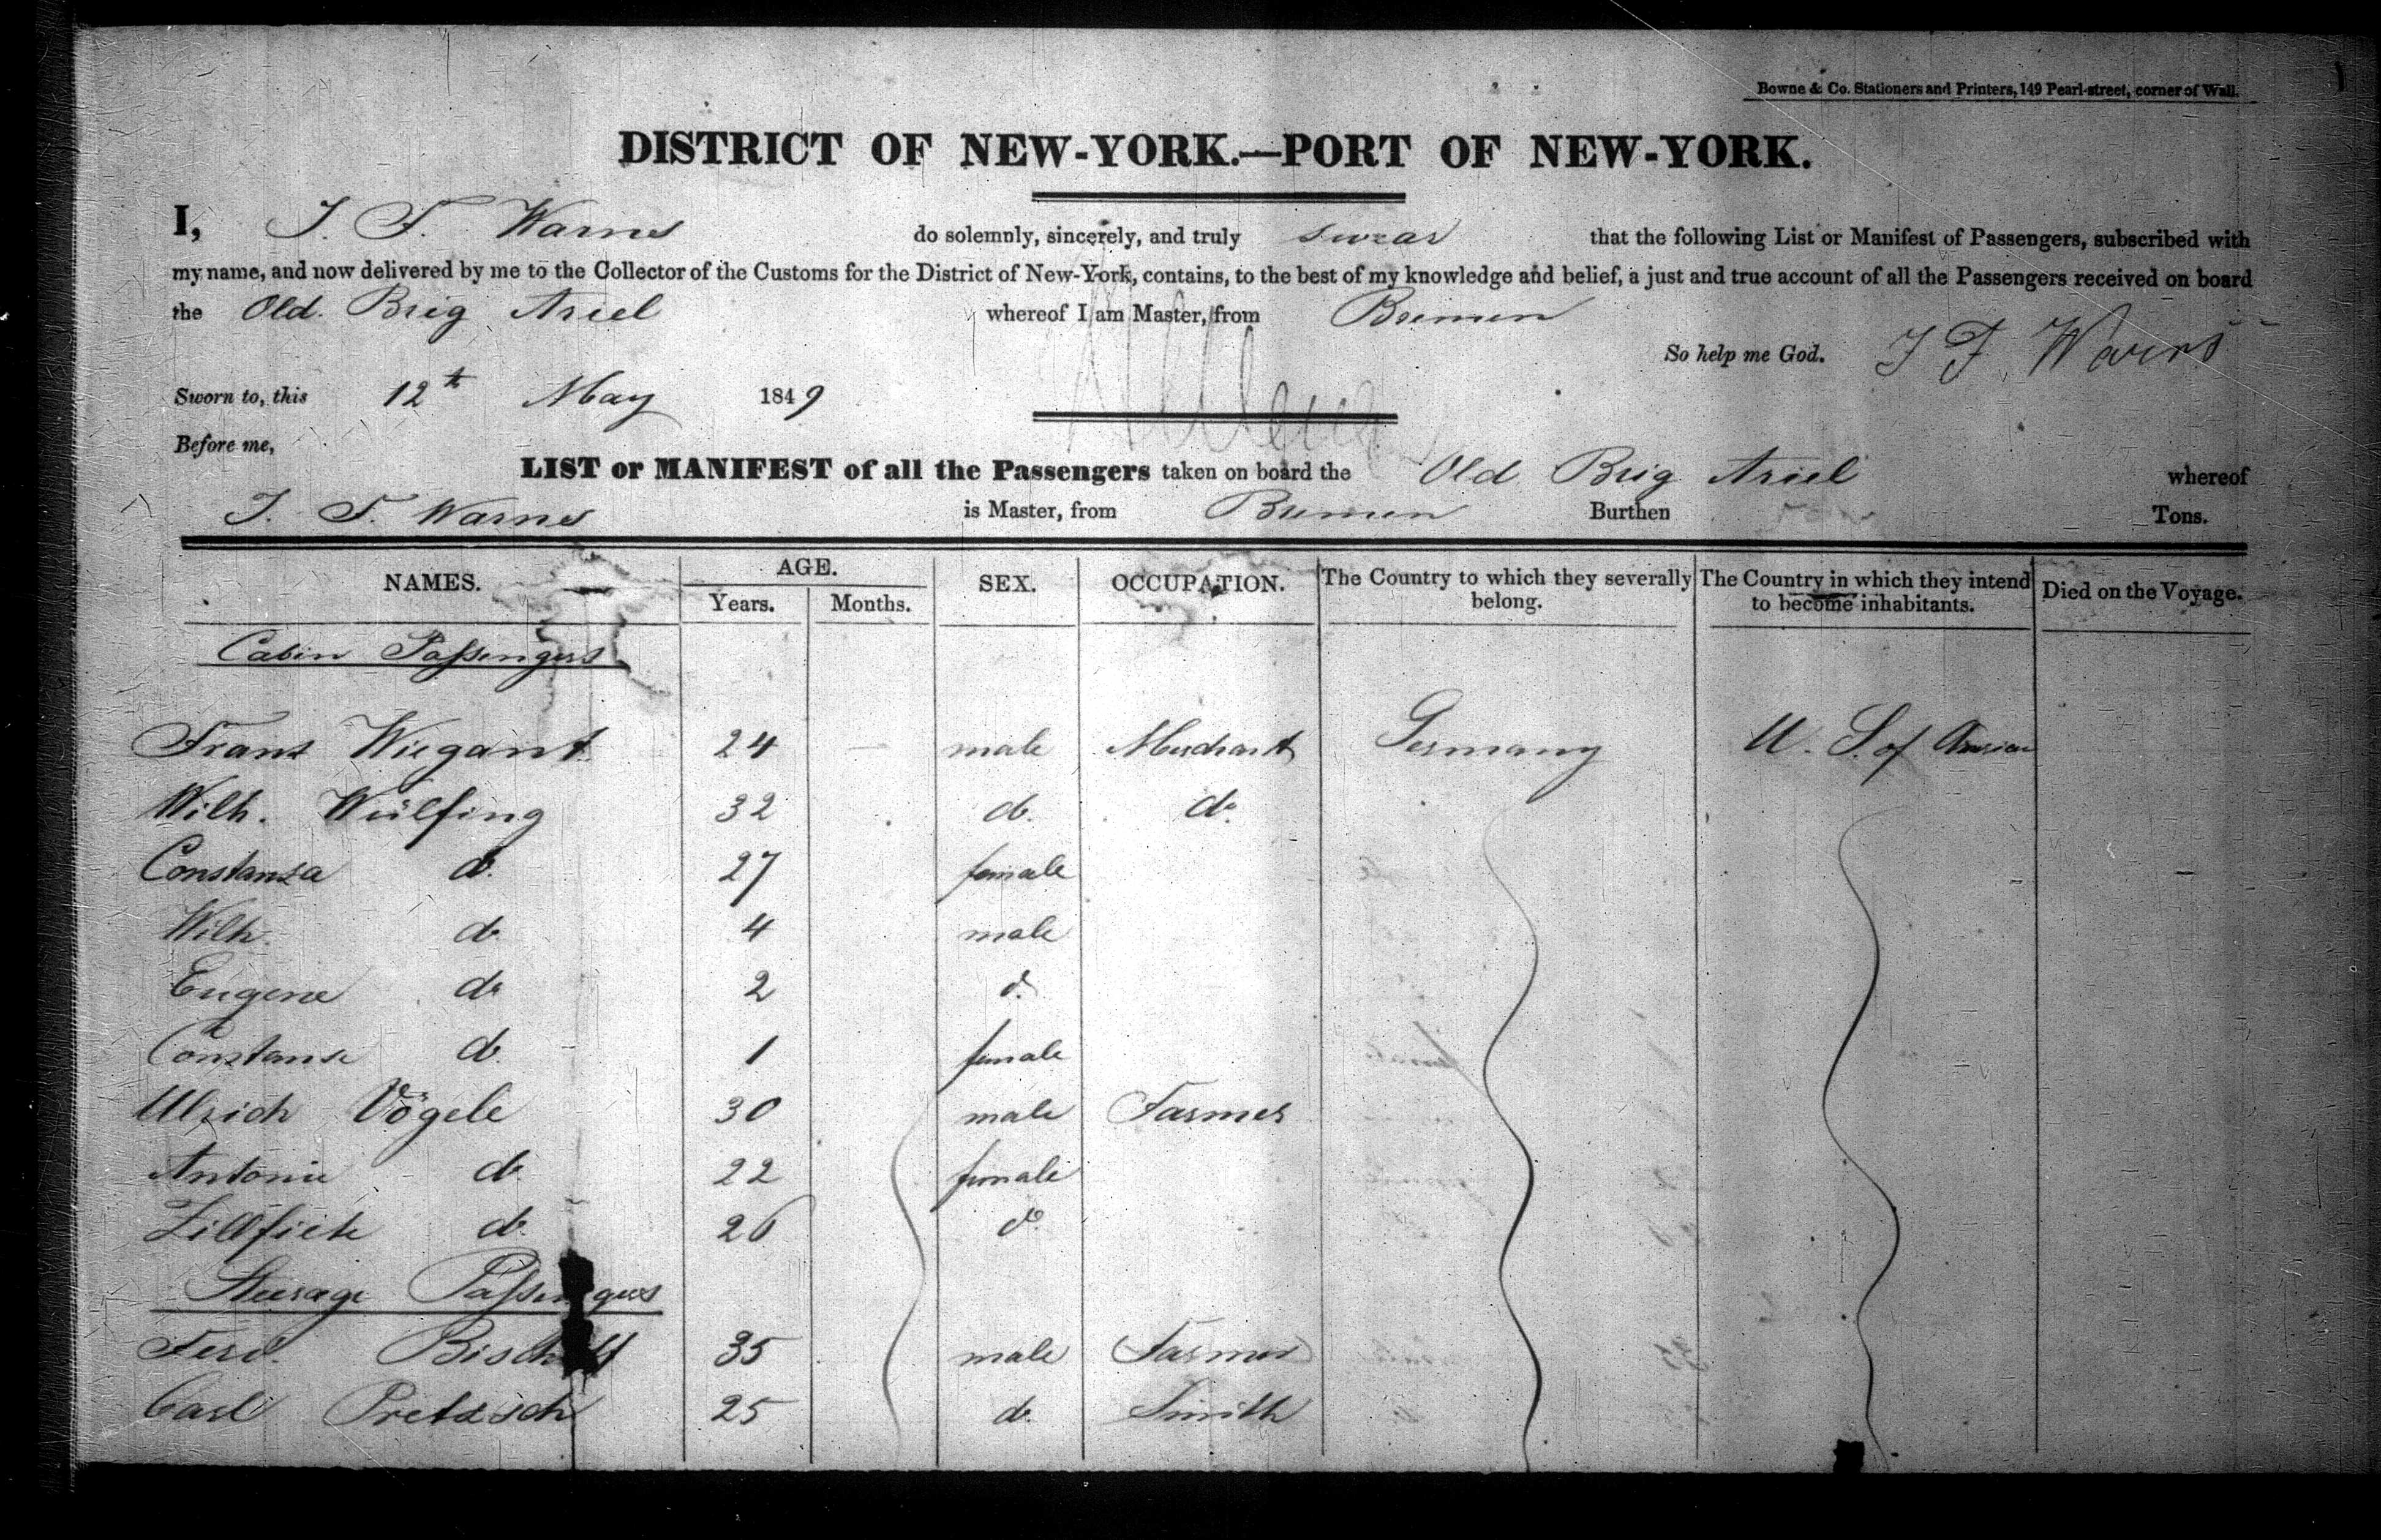 Bowne & Co. Stationers and Printers, 149 Pearl-street, corner of Wall.
DISTRICT OF NEW-YORK.—PORT OF NEW-YORK.
I, J. F. Warns do solemnly, sincerely, and truly swear that the following List or Manifest of Passengers, subscribed with
my name, and now delivered by me to the Collector of the Customs for the District of New-York, contains, to the best of my knowledge and belief, a just and true account of all the Passengers received on board
the Old. Brig Ariel whereof I am Master, from Bremen
So help me God. J F Warns
Sworn to, this 12th May 1849
Before me,
LIST or MANIFEST of all the Passengers taken on board the Old Brig Ariel whereof
J. F. Warns is Master, from Bremen Burthen Tons.
NAMES. AGE. Years. Months. SEX. OCCUPATION. The Country to which they severally belong. The Country in which they intend to become inhabitants. Died on the Voyage.
Cabin Passengers
Franz Wiegant 24 — male Merchant Germany U. S. of America
Wilh. Wülfing 32 do. do.
Constanza do. 27 female
Wilh. do 4 male
Eugene do 2 do.
Constanze do. 1 female
Ulrich Vögele 30 male Farmer
Antonie do. 22 female
do. 26 do.
Steerage Passengers
Ferd. Bischoff 35 male Farmer
Carl Pretzsch 25 do. Smith